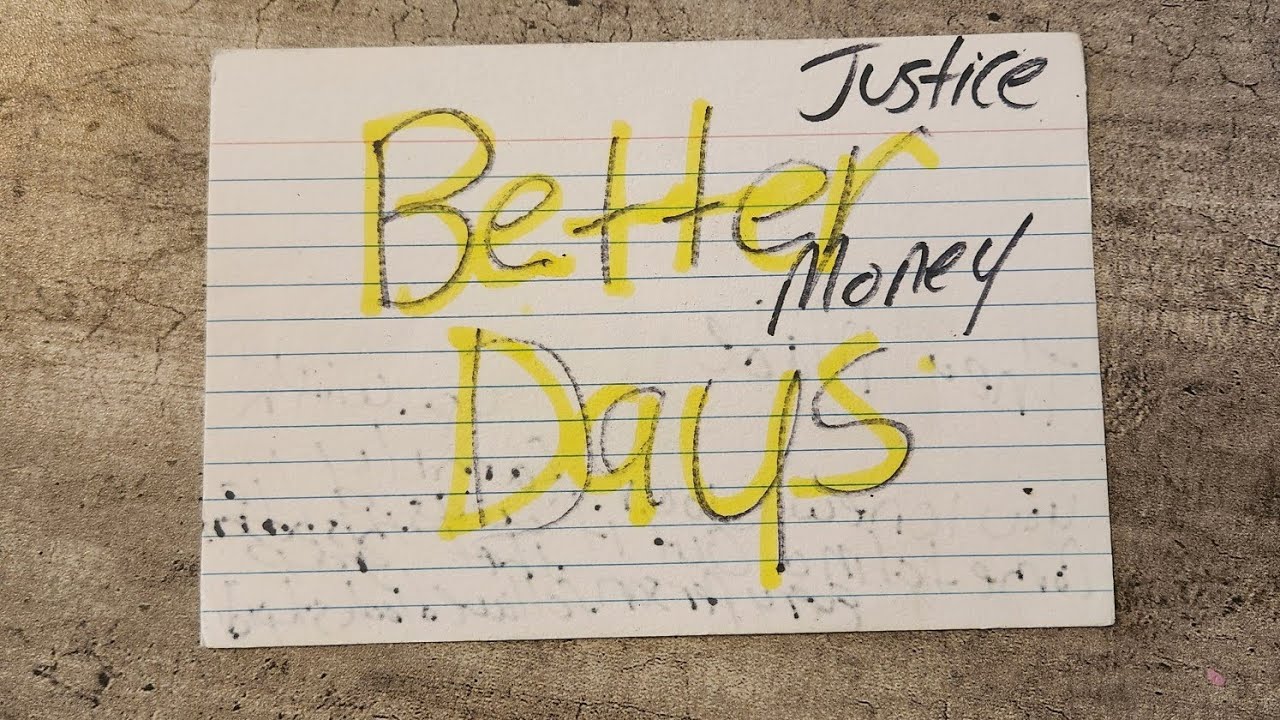 Justice
Better
Money
Days